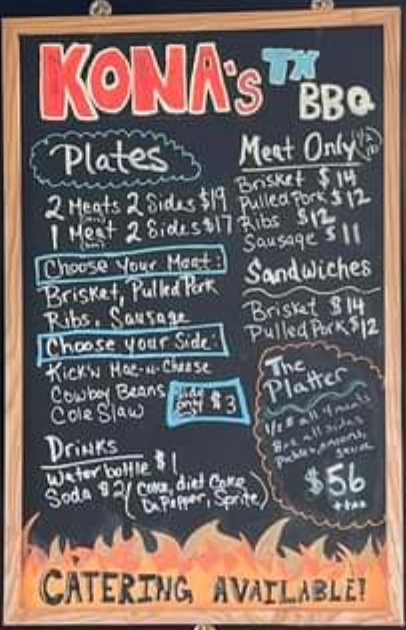 KONA's TX BBQ
Plates
2 Meats 2 Sides $19
1 Meat 2 Sides $17
Choose Your Meat:
Brisket, Pulled Pork
Ribs, Sausage
Choose your Side:
Kick'n Mac-n-Cheese
Cowboy Beans
Cole Slaw
Side only $3
Drinks
Water bottle $1
Soda $2 (Coke, diet Coke,
Dr Pepper, Sprite)
Meat Only
Brisket $14
Pulled Pork $12
Ribs $12
Sausage $11
Sandwiches
Brisket $14
Pulled Pork $12
The
Platter
all 4 meats
all sides
Pickles, onions,
$56
CATERING AVAILABLE!